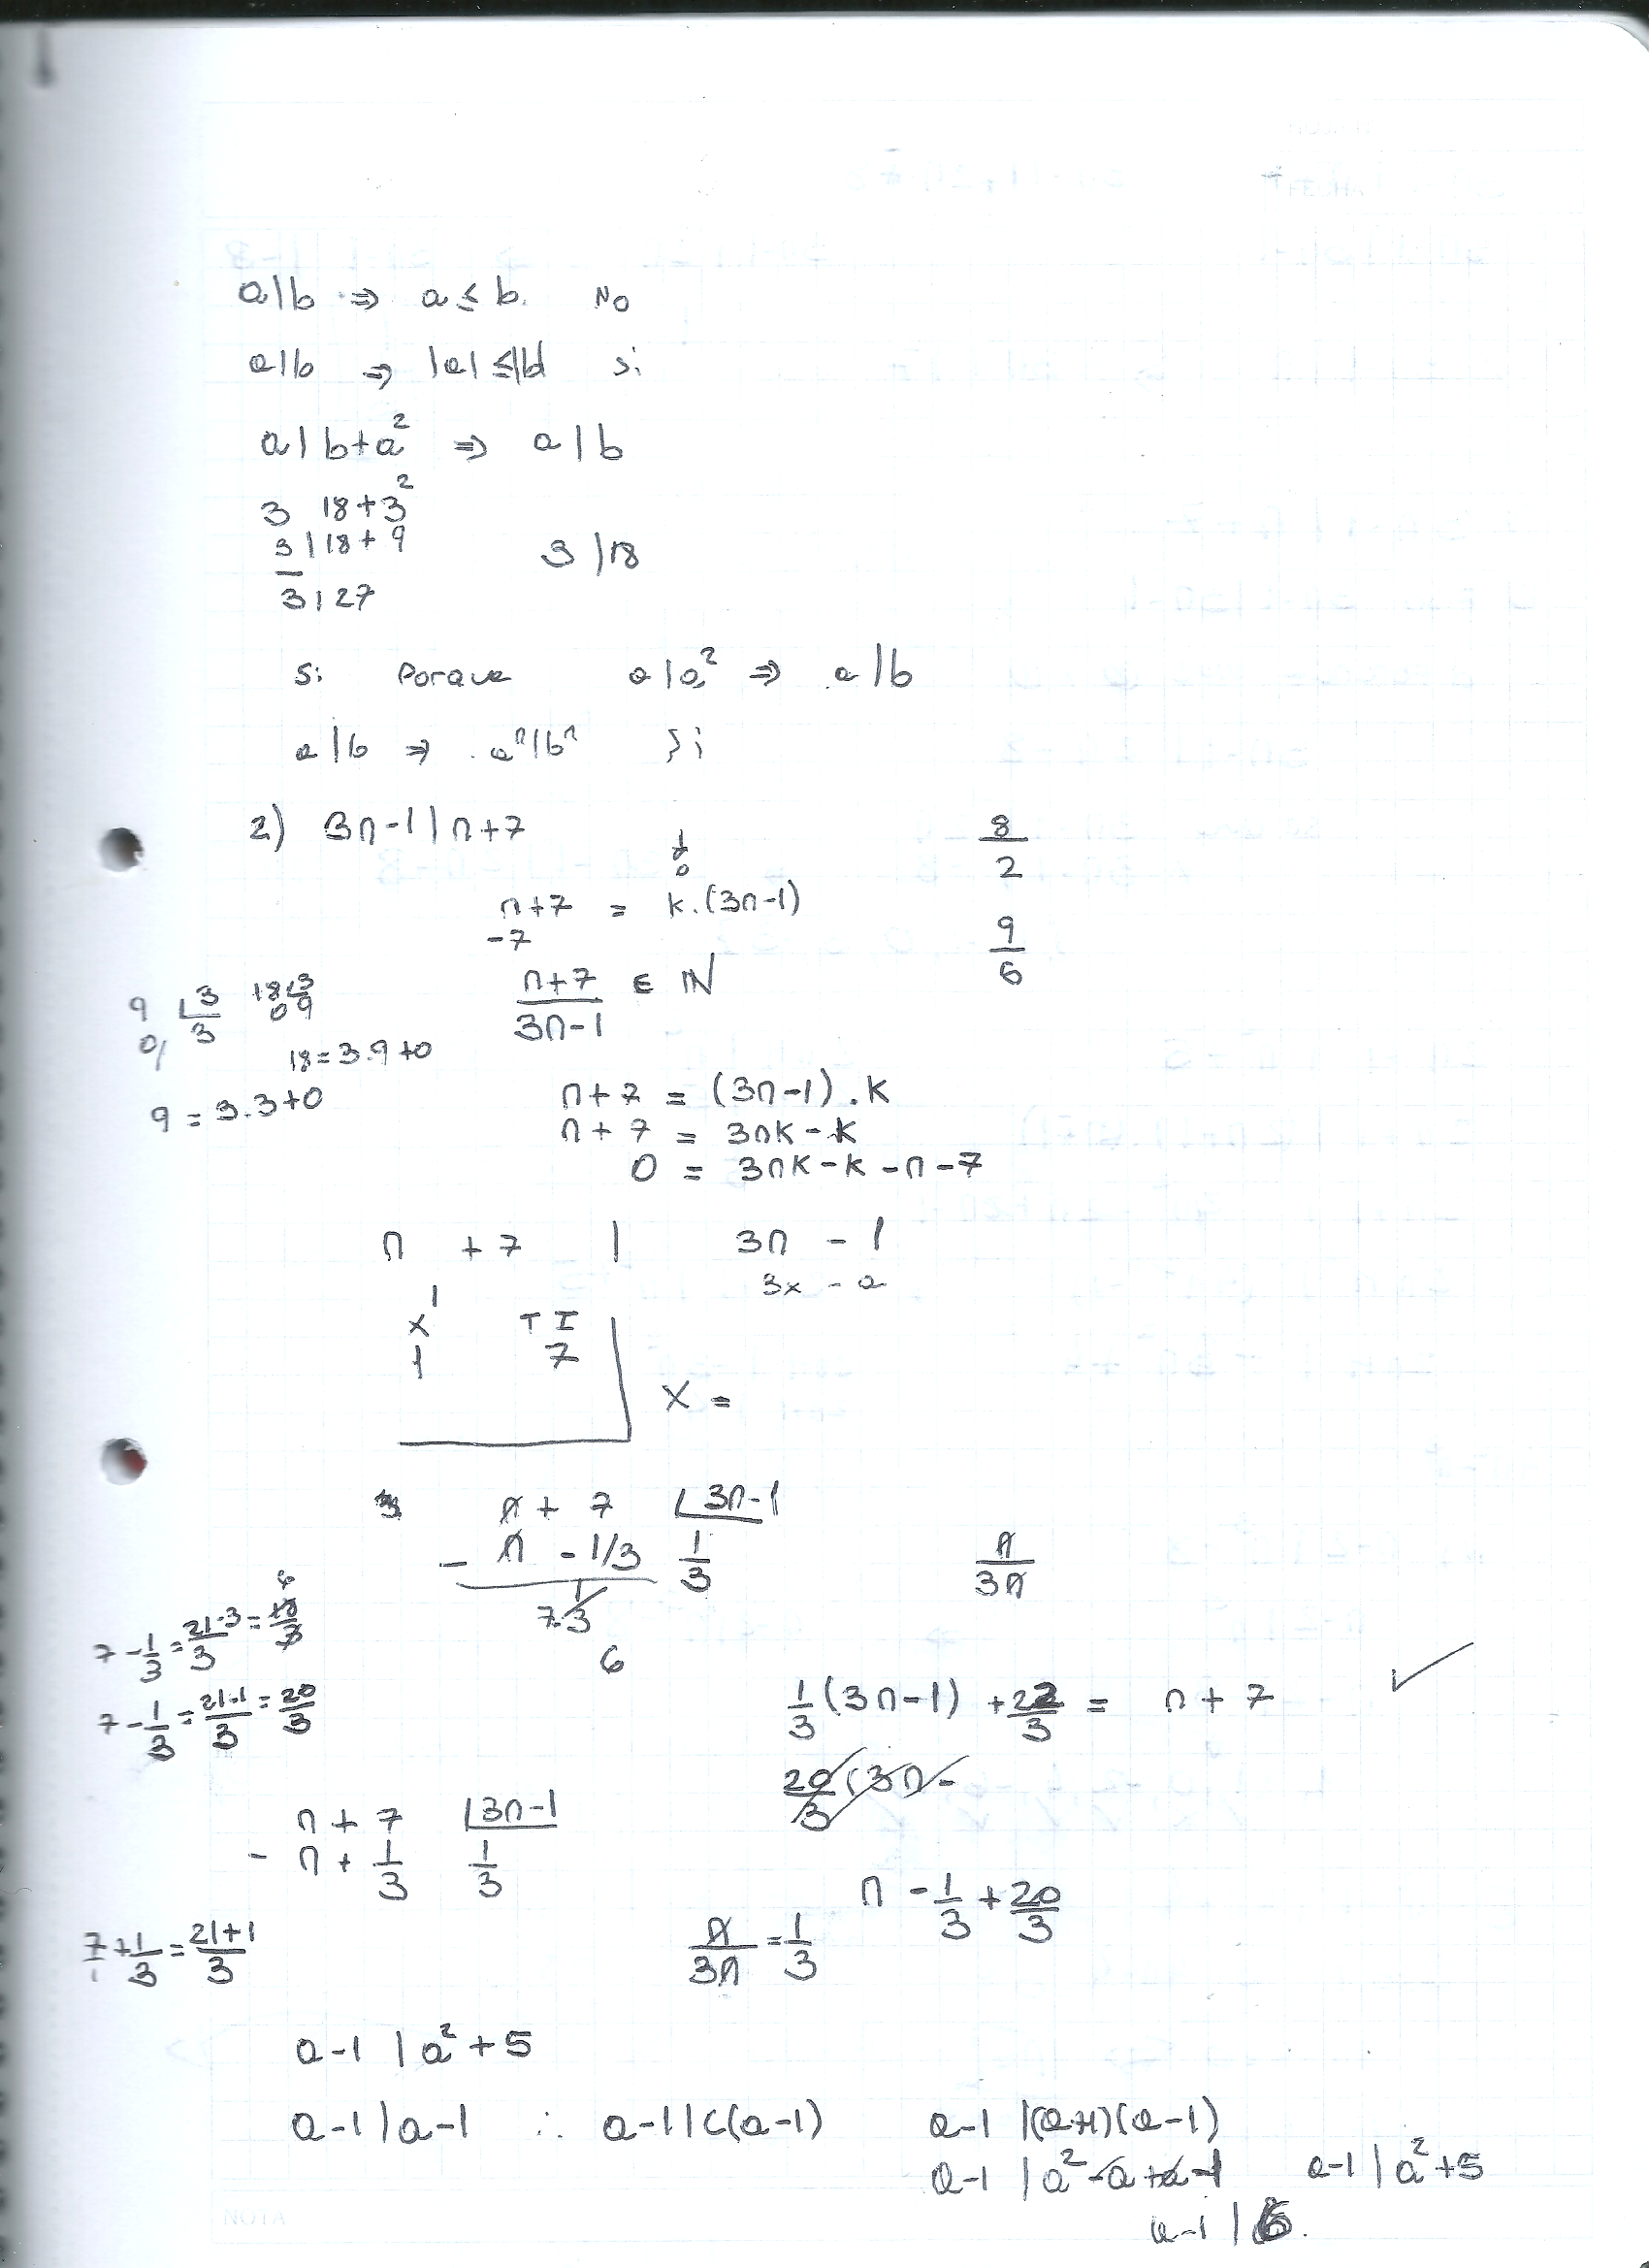 a|b ⇒ a ≤ b. No
a|b ⇒ |a| ≤ |b| Si
a|b+a² ⇒ a|b
3 18+3²
3|18+9 3|18
3|27
Si Porque a|a² ⇒ a|b
a|b ⇒ aⁿ|bⁿ Si
2) 3n-1|n+7
8/2
n+7 = k.(3n-1)
-7
9/6
(n+7)/(3n-1) ∈ ℕ
9 3 18 3
0 3 0 9
18=3.9+0
9=3.3+0
n+7 = (3n-1).k
n+7 = 3nk-k
0 = 3nk-k-n-7
n +7 | 3n - 1
3x - a
x¹ TI
1 7
x =
n+7 3n-1
- n -1/3 1/3
n/3n
7-3
6
7-1/3=21-3/3=18/3 6
7-1/3=21-1/3=20/3
1/3(3n-1) +22/3 = n+7
20/3(3n-
n+7 3n-1
- n+1/3 1/3
n -1/3 +20/3
7/1+1/3=21+1/3
n/3n=1/3
a-1|a²+5
a-1|a-1 ∴ a-1|c(a-1) a-1|(a+1)(a-1)
a-1|a²-a+a-1 a-1|a²+5
a-1|6.
NOTA